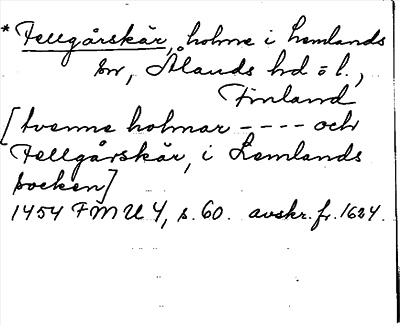 *Fellgårskär, holme i Lemlands
sn, Ålands hd o l.,
Finland
[tvenne holmar - - - - och
Fellgårskär, i Lemlands
socken]
1454 FMU 4, s. 60. avskr. fr. 1624.